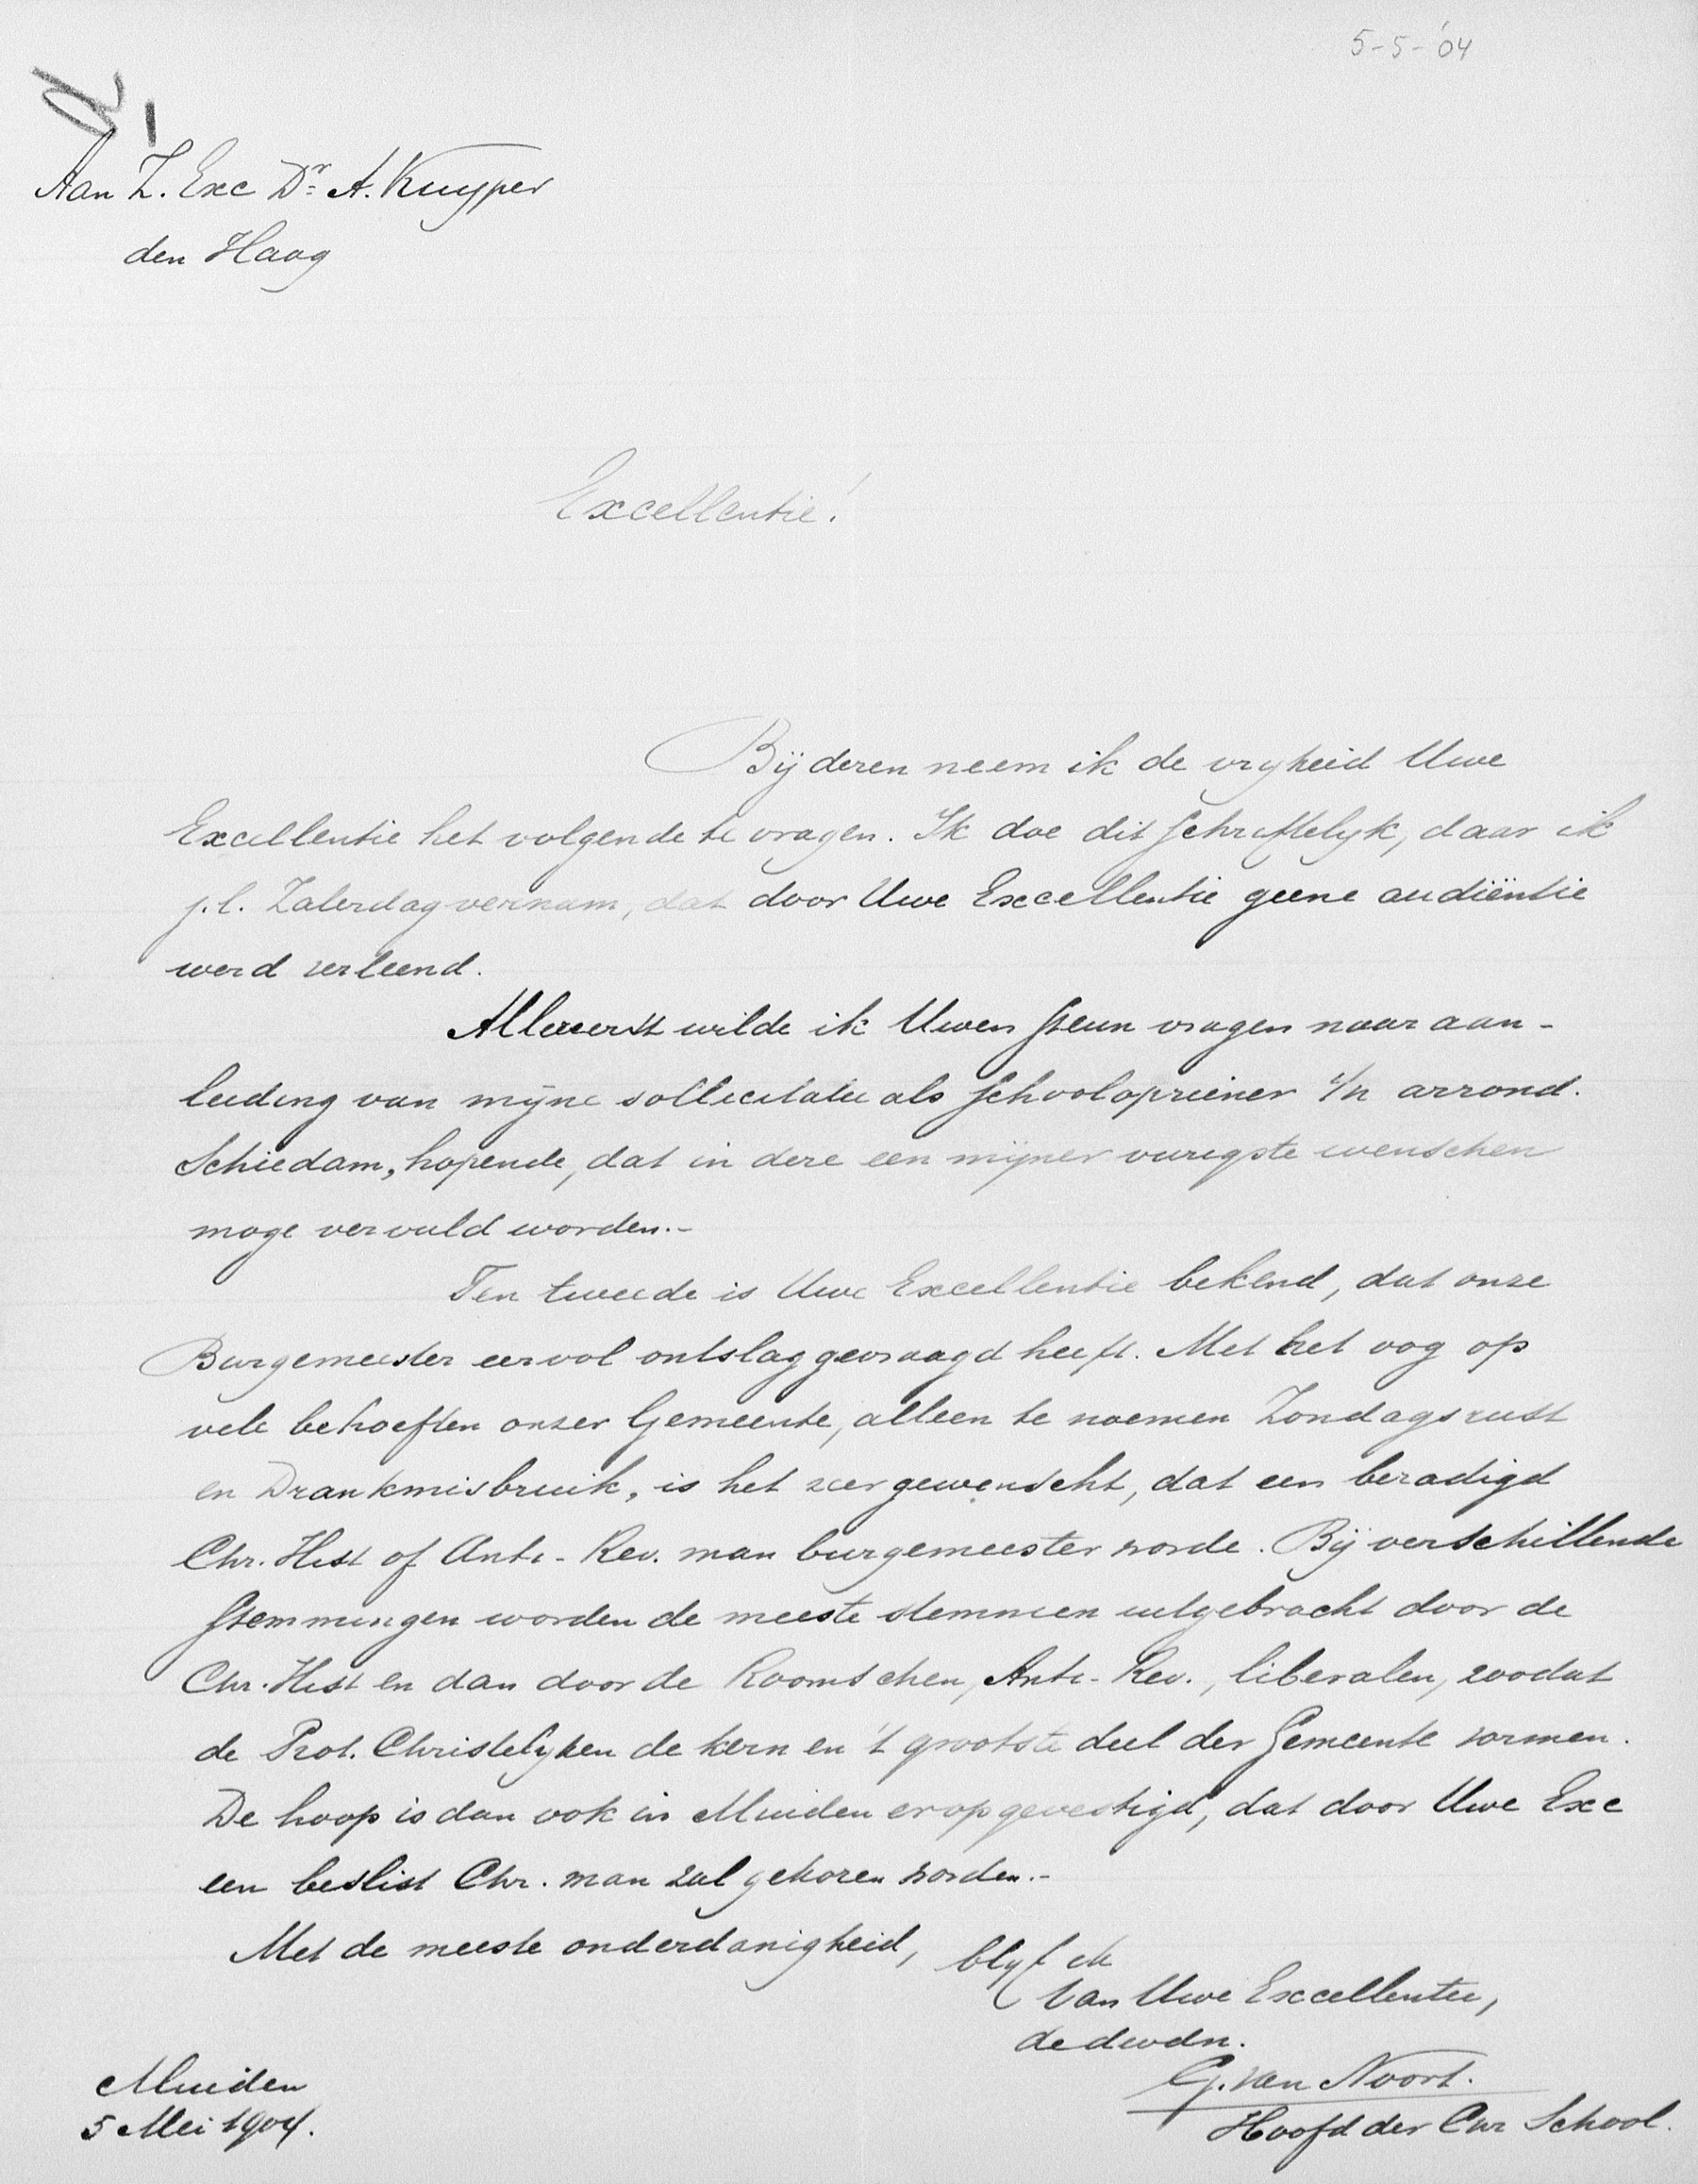 5-5-'04
Aan Z. Exc Dr. A. Kuyper
den Haag
Excellentie!
Bij dezen neem ik de vryheid Uwe
Excellentie het volgende te vragen. Ik doe dit schriftelyk, daar ik
j.l. Zaterdag vernam, dat door Uwe Excellentie geene audiëntie
werd verleend.
Allereerst wilde ik Uwen steun vragen naar aan-
leiding van mijne sollicitatie als schoolopziener i/h arrond.
Schiedam, hopende, dat in deze een mijner vurigste wenschen
moge vervuld worden.-
Ten tweede is Uwe Excellentie bekend, dat onze
Burgemeester eervol ontslag gevraagd heeft. Met het oog op
vele behoeften onzer Gemeente, alleen te noemen Zondagsrust
en Drankmisbruik, is het zeer gewenscht, dat een beradigd
Chr. Hist of Anti-Rev. man burgemeester worde. Bij verschillende
stemmingen worden de meeste stemmen uitgebracht door de
Chr. Hist en dan door de Roomschen, Anti-Rev., liberalen, zoodat
de Prot. Christelyken de kern en 't grootste deel der Gemeente vormen.
De hoop is dan ook in Muiden erop gevestigd, dat door Uwe Exc
een beslist Chr. man zal gekozen worden.-
Met de meeste onderdanigheid, blyf ik
Van Uwe Excellentie,
de dwdn.
G. van Noort.
Hoofd der Chr School.
Muiden
5 Mei 1904.